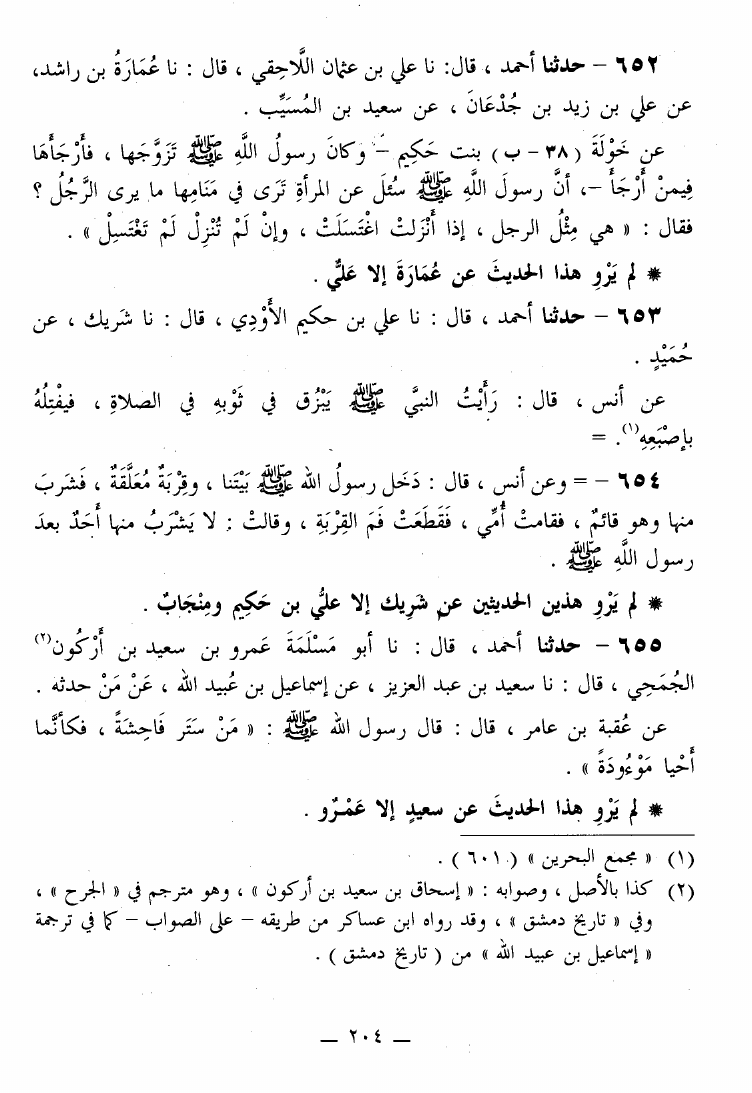 ٦٥٢ – حدثنا أحمد ، قال: نا علي بن عثمان اللَّاحِقي ، قال : نا عُمَارَةُ بن راشد،
عن علي بن زيد بن جُدْعَانَ ، عن سعيد بن المُسَيِّب .
عن خَوْلَةَ (٣٨ – ب) بنت حَكِيم – وكانَ رسولُ اللَّهِ ﷺ تَزَوَّجَها ، فأَرْجَأَهَا
فِيمنْ أَرْجَأَ –، أنَّ رسولَ اللَّهِ ﷺ سُئلَ عن المرأةِ تَرَى في مَنَامِها ما يرى الرَّجُلُ ؟
فقال : « هي مِثْلُ الرجل ، إذا أَنْزَلتْ اغْتَسَلَتْ ، وإنْ لَمْ تُنْزِلْ لَمْ تَغْتَسِلْ » .
* لم يَرْوِ هذا الحديثَ عن عُمَارَةَ إلا عَليٌّ .
٦٥٣ – حدثنا أحمد ، قال : نا علي بن حكيم الأَوْدِي ، قال : نا شَريك ، عن
حُمَيْدٍ .
عن أنس ، قال : رَأَيْتُ النبيَّ ﷺ يَبْزُق في ثَوْبهِ في الصلاةِ ، فيفْتِلُهُ
بإصْبَعِهِ(١). =
٦٥٤ – = وعن أنس ، قال : دَخَل رسولُ الله ﷺ بَيْتَنا ، وقِرْبَةٌ مُعَلَّقَةٌ ، فَشَربَ
منها وهو قائمٌ ، فقامتْ أُمِّي ، فَقَطَعَتْ فَمَ القِرْبَةِ ، وقالتْ : لا يَشْرَبُ منها أَحَدٌ بعدَ
رسول اللَّهِ ﷺ .
* لم يَرْوِ هذين الحديثين عن شَرِيك إلا عليُّ بن حَكِيم ومِنْجَابٌ .
٦٥٥ – حدثنا أحمد ، قال : نا أبو مَسْلَمَةَ عَمرو بن سعيد بن أَرْكُون(٢)
الجُمَحِي ، قال : نا سعيد بن عبد العزيز ، عن إسماعيل بن عُبيد الله ، عَنْ مَنْ حدثه .
عن عُقبة بن عامر ، قال : قال رسول الله ﷺ : « مَنْ سَتَر فَاحِشَةً ، فكأنَّما
أَحْيا مَوْءُودَةً » .
* لم يَرْوِ هذا الحديثَ عن سعيدٍ إلا عَمْـرٌو .
(١) « مجمع البحرين » (٦٠١) .
(٢) كذا بالأصل ، وصوابه : « إسحاق بن سعيد بن أركون » ، وهو مترجم في « الجرح » ،
وفي « تاريخ دمشق » ، وقد رواه ابن عساكر من طريقه – على الصواب – كما في ترجمة
« إسماعيل بن عبيد الله » من ( تاريخ دمشق ) .
— ٢٠٤ —